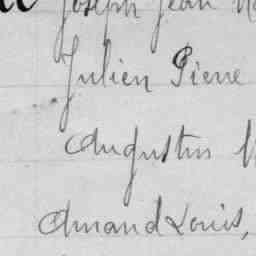 Joseph Jean
Julien Pierre
Augustin
Amand Louis,